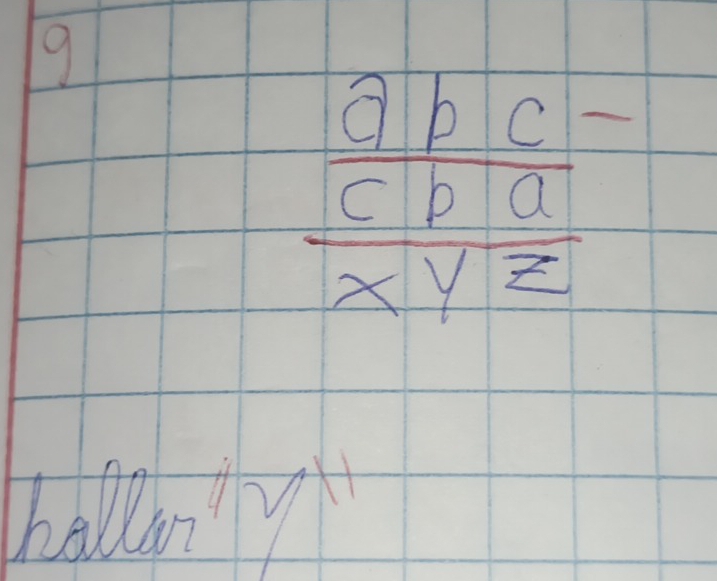 9
a b c -
c b a
x y z
hallar "y"